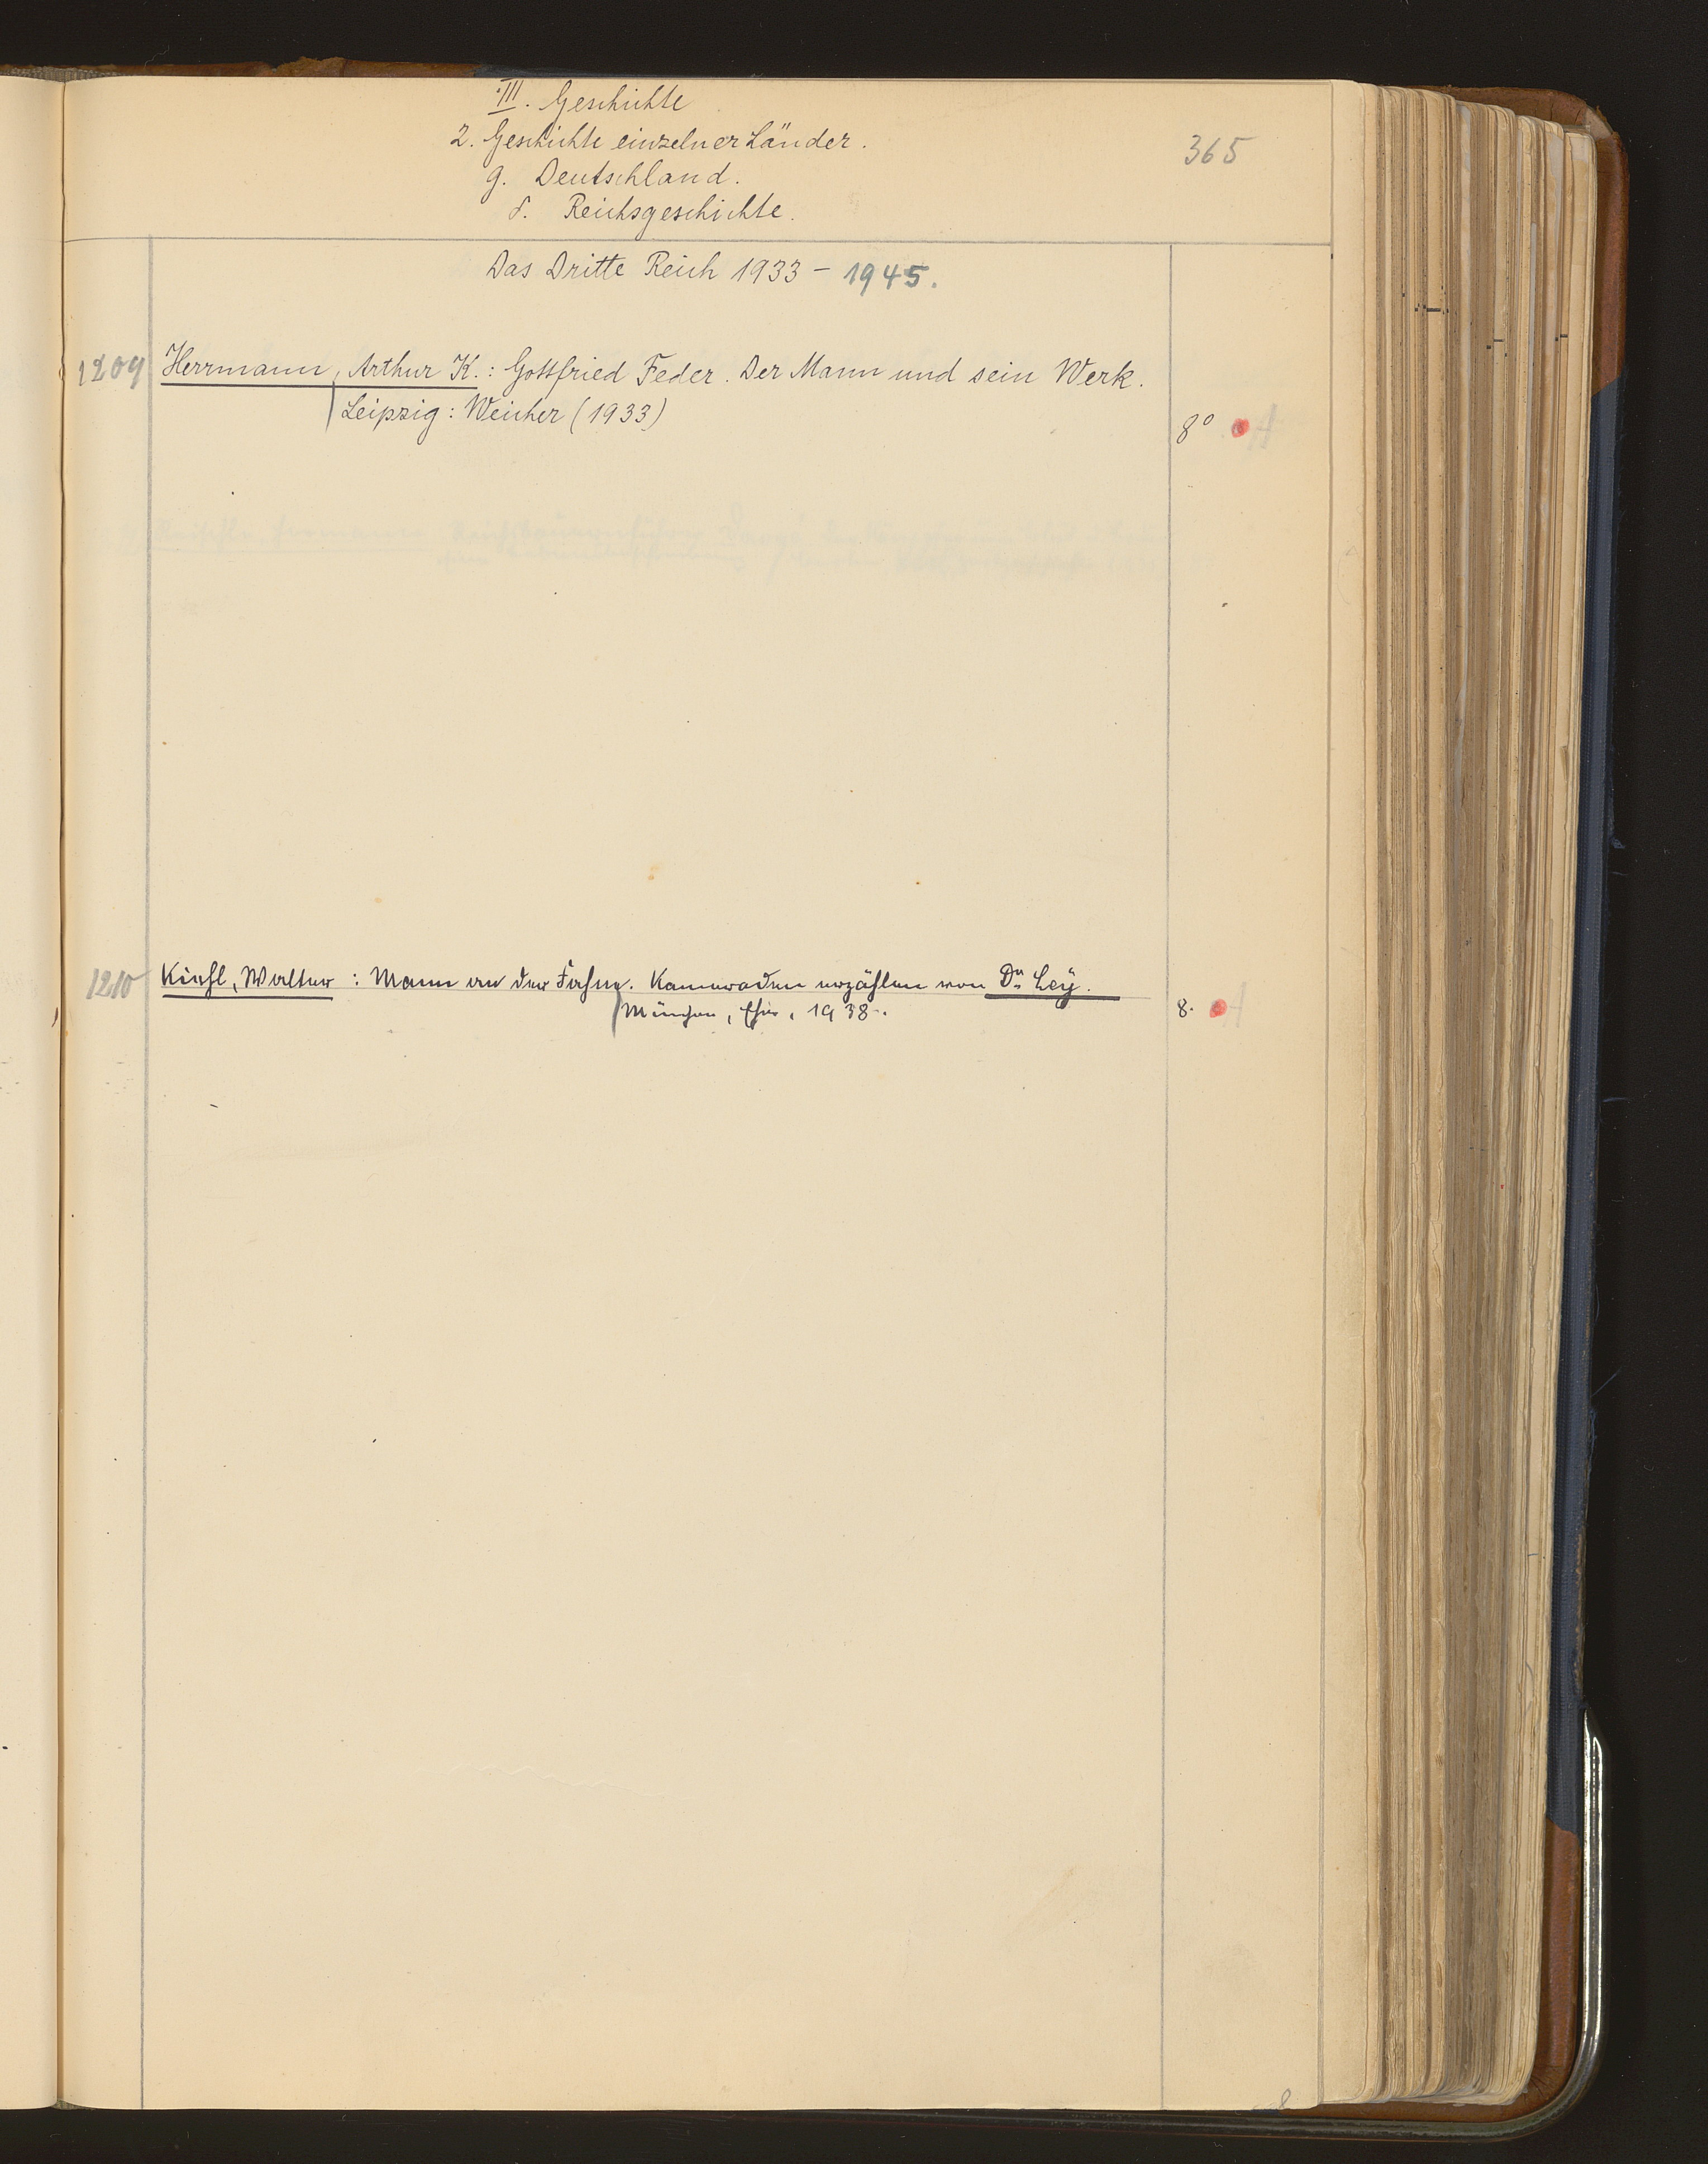 III. Geschichte
2. Geschichte einzelner Länder.
365
g. Deutschland.
δ. Reichsgeschichte.
Das Dritte Reich 1933 - 1945.
1209 Herrmann, Arthur K.: Gottfried Feder. Der Mann und sein Werk.
Leipzig: Weicher (1933)
8° A
1210 Kiehl, Walter: Mann an der Fahne. Kameraden erzählen von Dr. Ley.
München, Eher, 1938.
8. A